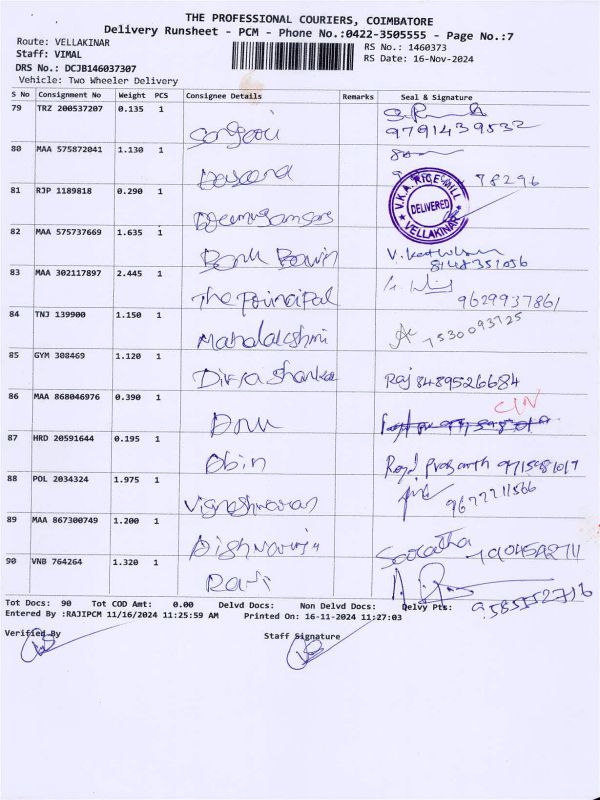 THE PROFESSIONAL COURIERS, COIMBATORE
Delivery Runsheet - PCM - Phone No.:0422-3505555 - Page No.:7
Route: VELLAKINAR
RS No.: 1460373
Staff: VIMAL
RS Date: 16-Nov-2024
DRS No.: DCJB146037307
Vehicle: Two Wheeler Delivery
S No Consignment No Weight PCS Consignee Details Remarks Seal & Signature
79 TRZ 200537207 0.135 1
9791439532
80 MAA 575872041 1.130 1
98296
81 RJP 1189818 0.290 1
V.K.A. RICE MILL
DELIVERED
VELLAKINAR
82 MAA 575737669 1.635 1
8148351056
83 MAA 302117897 2.445 1
The Principal
9629937861
84 TNJ 139900 1.150 1
Mahalakshmi
7530093725
85 GYM 308469 1.120 1
Divya Shankar
Raj 8489526684
86 MAA 868046976 0.390 1
87 HRD 20591644 0.195 1
Abin
Prasanth
88 POL 2034324 1.975 1
Vigneshwaran
9677211566
89 MAA 867300749 1.200 1
90 VNB 764264 1.320 1
Ravi
9585552716
Tot Docs: 90 Tot COD Amt: 0.00 Delvd Docs: Non Delvd Docs: Delvy Pts:
Entered By :RAJIPCM 11/16/2024 11:25:59 AM Printed On: 16-11-2024 11:27:03
Verified By
Staff Signature